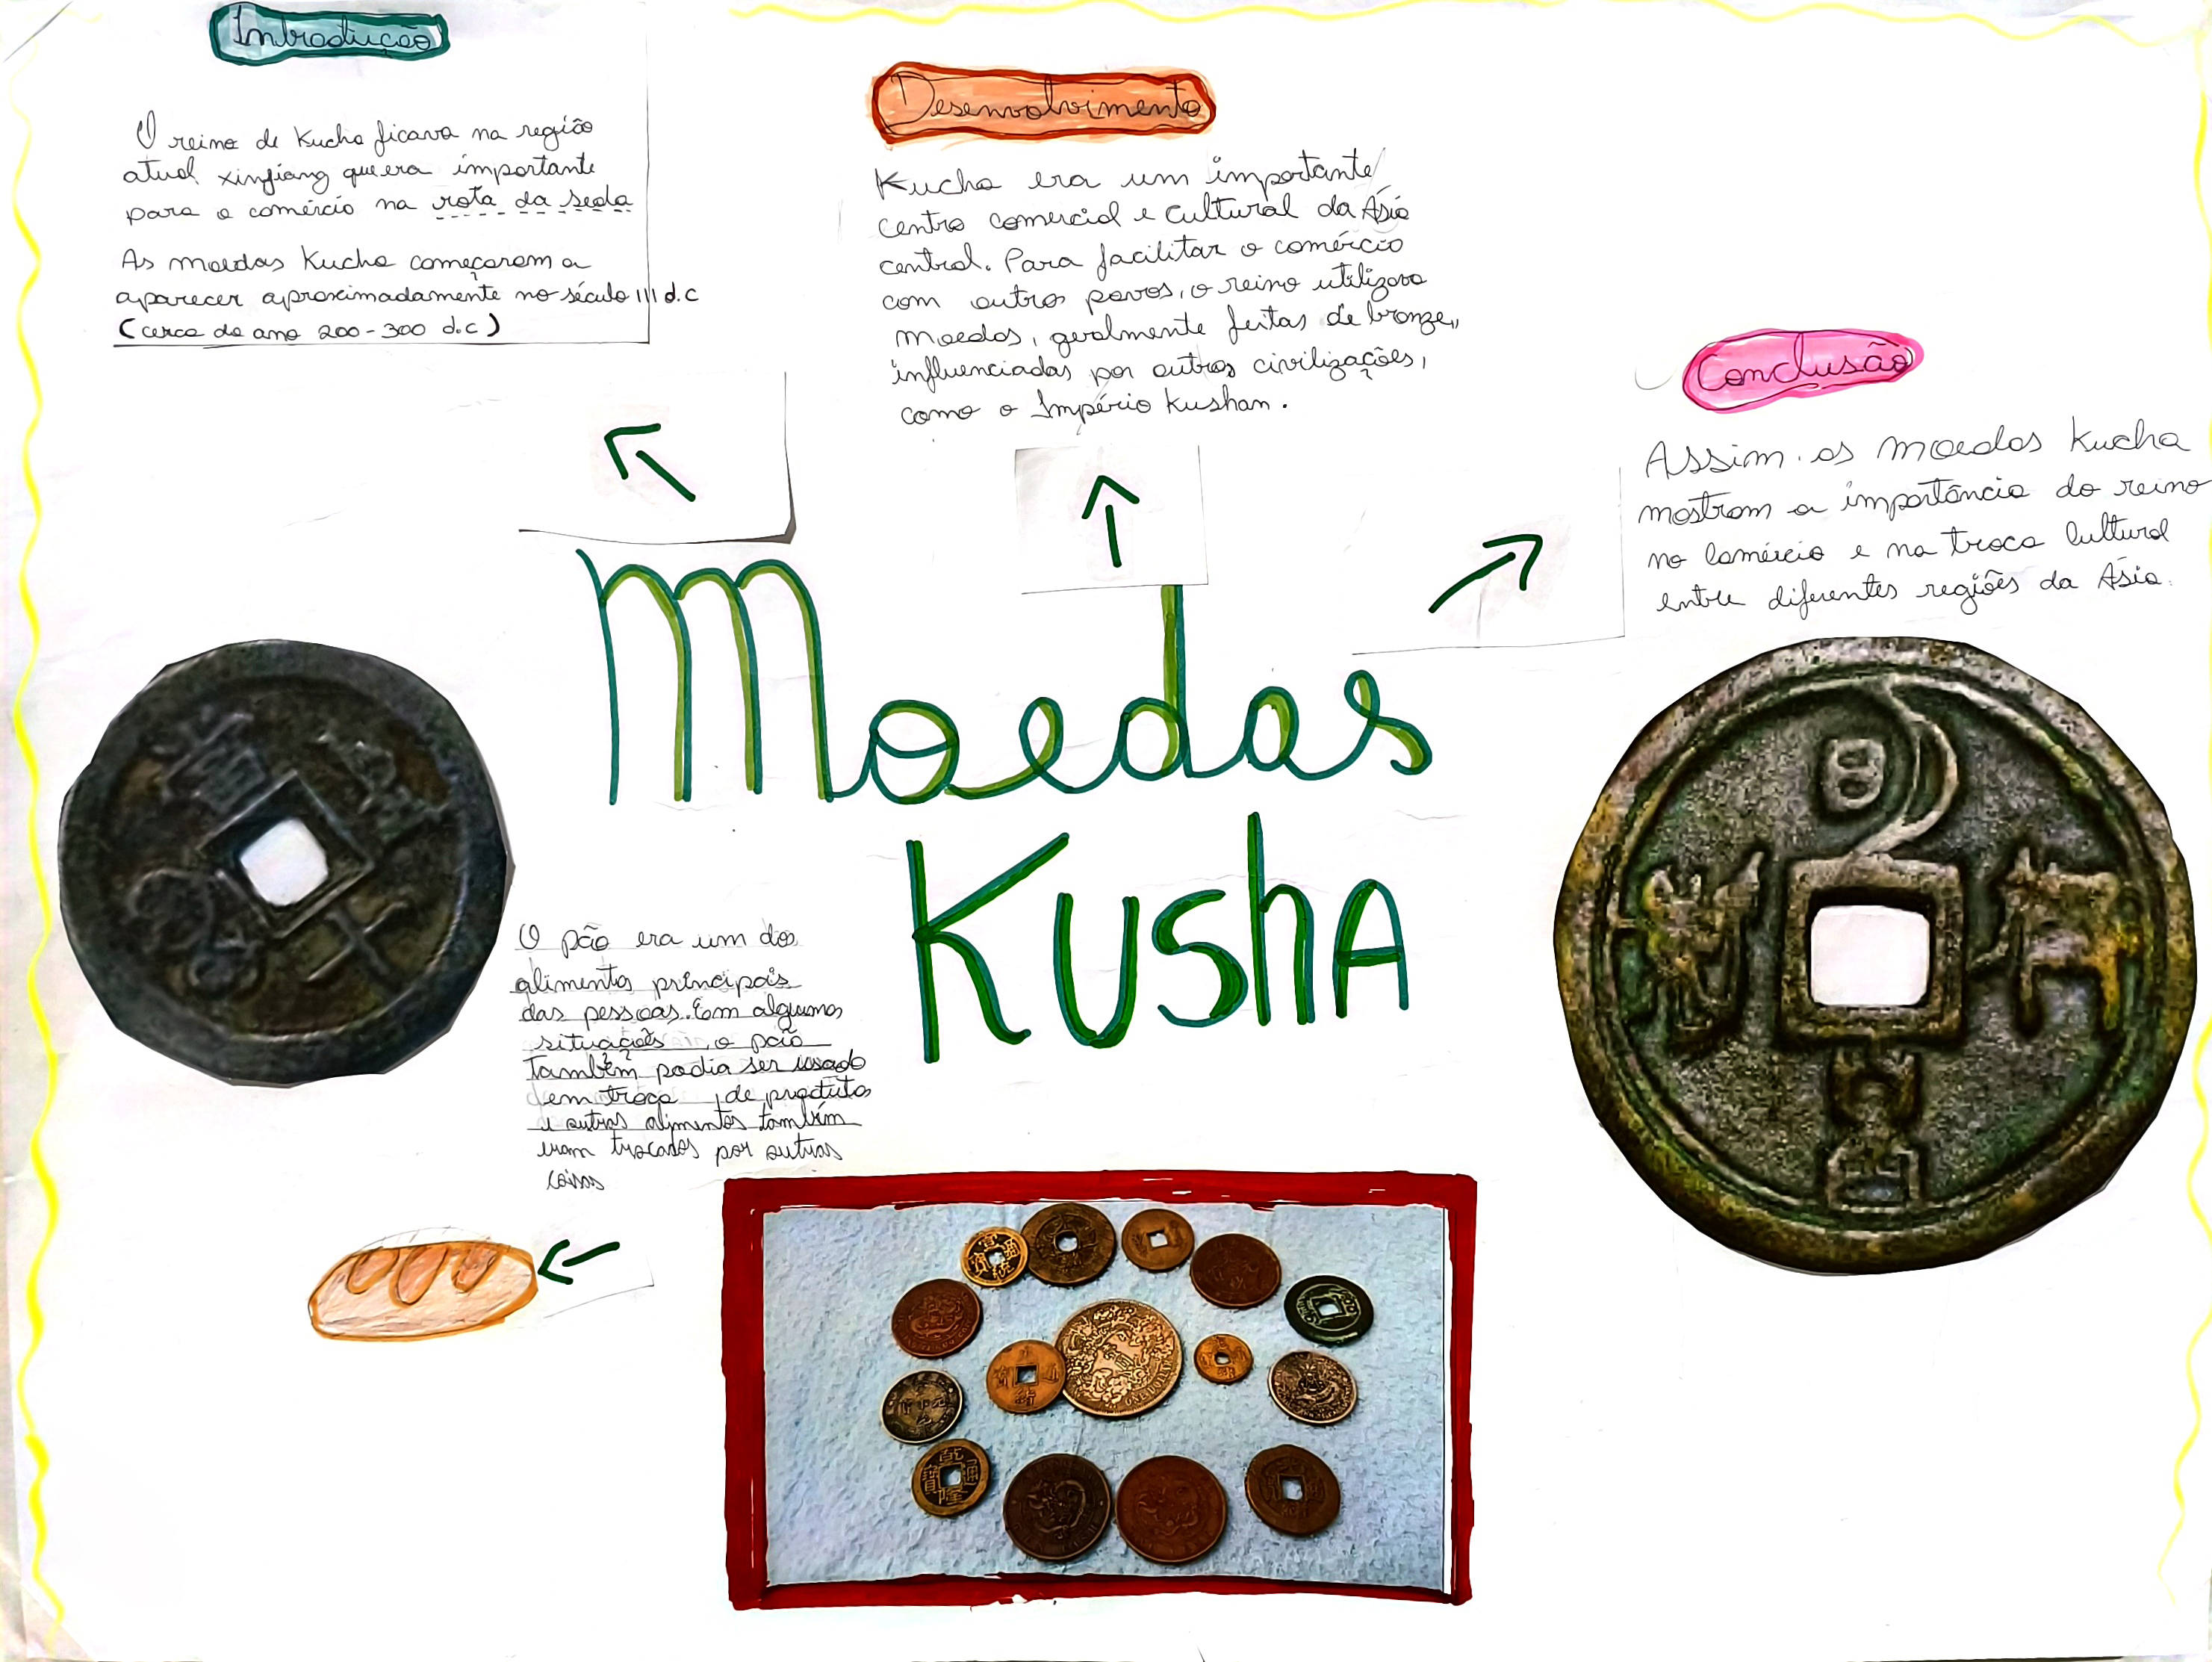 Introdução
O reino de Kucha ficava na região
atual xinjiang que era importante
para o comércio na rota da seda
As moedas Kucha começaram a
aparecer aproximadamente no século III d.c
(cerca do ano 200-300 d.c)
Desenvolvimento
Kucha era um importante
centro comercial e cultural da Ásia
central. Para facilitar o comércio
com outros povos, o reino utilizava
moedas, geralmente feitas de bronze,
influenciadas por outras civilizações,
como o Império Kushan.
Conclusão
Assim. as moedas Kucha
mostram a importância do reino
no comércio e na troca cultural
entre diferentes regiões da Ásia.
Moedas
KUshA
O pão era um dos
alimentos principais
das pessoas. Em algumas
situações, o pão
também podia ser usado
em troca, de produtos
e outros alimentos também
eram trocados por outras
coisas
ONE DOLLAR
乾隆通寶